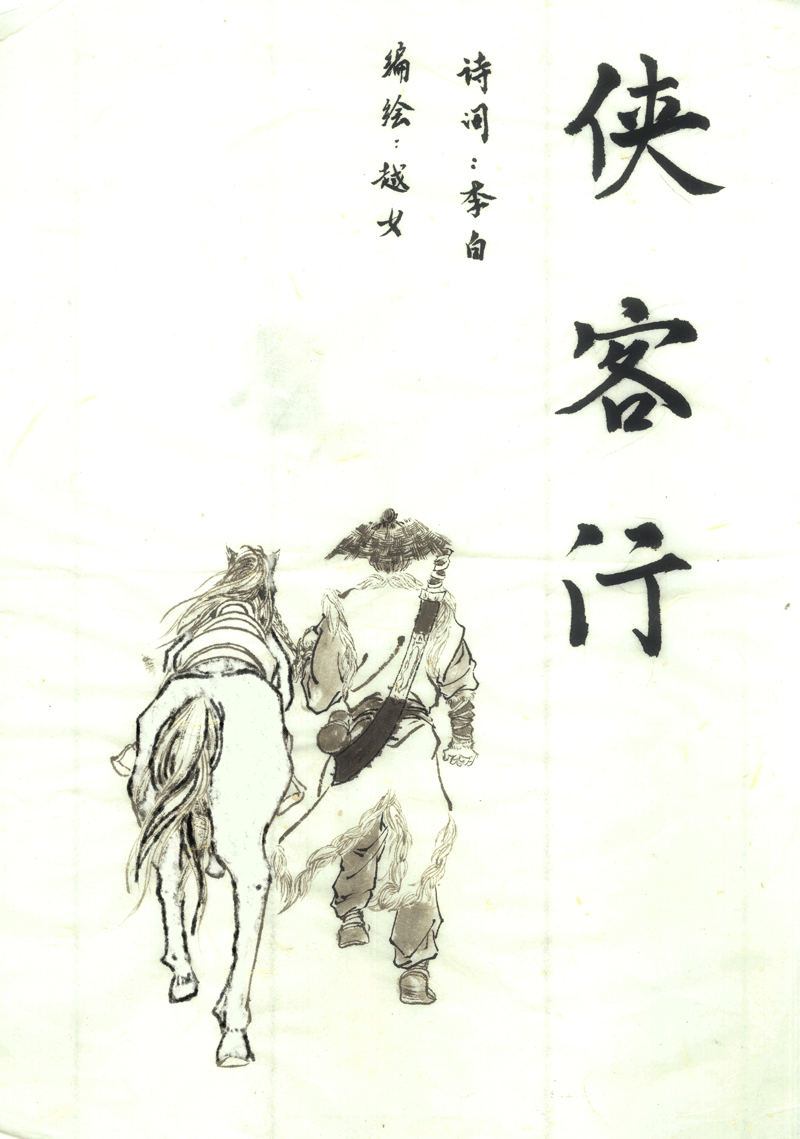 侠客行
诗词：李白
编绘：越女